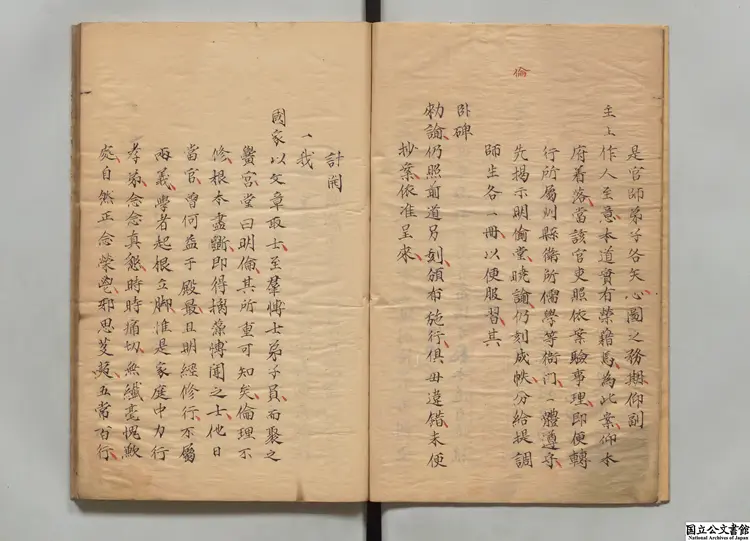 倫
是官師弟子各矢心圖之務期仰副
主上作人至意本道實有榮藉焉為此案仰本
府着落當該官吏照依案驗事理即便轉
行所屬州縣衛所儒學等衙門一體遵守
先揭示明倫堂曉諭仍刻成帙分給提調
師生各一冊以便服習其
卧碑
勑諭仍照前道另刻頒布施行俱毋違錯未便
抄案依准呈來
計開
一我
國家以文章取士至羣博士弟子員而聚之
黌宮堂曰明倫其所重可知矣倫理不
修根本盡斵即得摛藻愽聞之士他日
當官曾何益于殿最且明經修行不屬
兩義學者起根立脚淮是家庭中力行
孝弟念念真懇時時痛切無纖毫愧歉
處自然正念榮鬯邪思芟薙五常百行
国立公文書館
National Archives of Japan